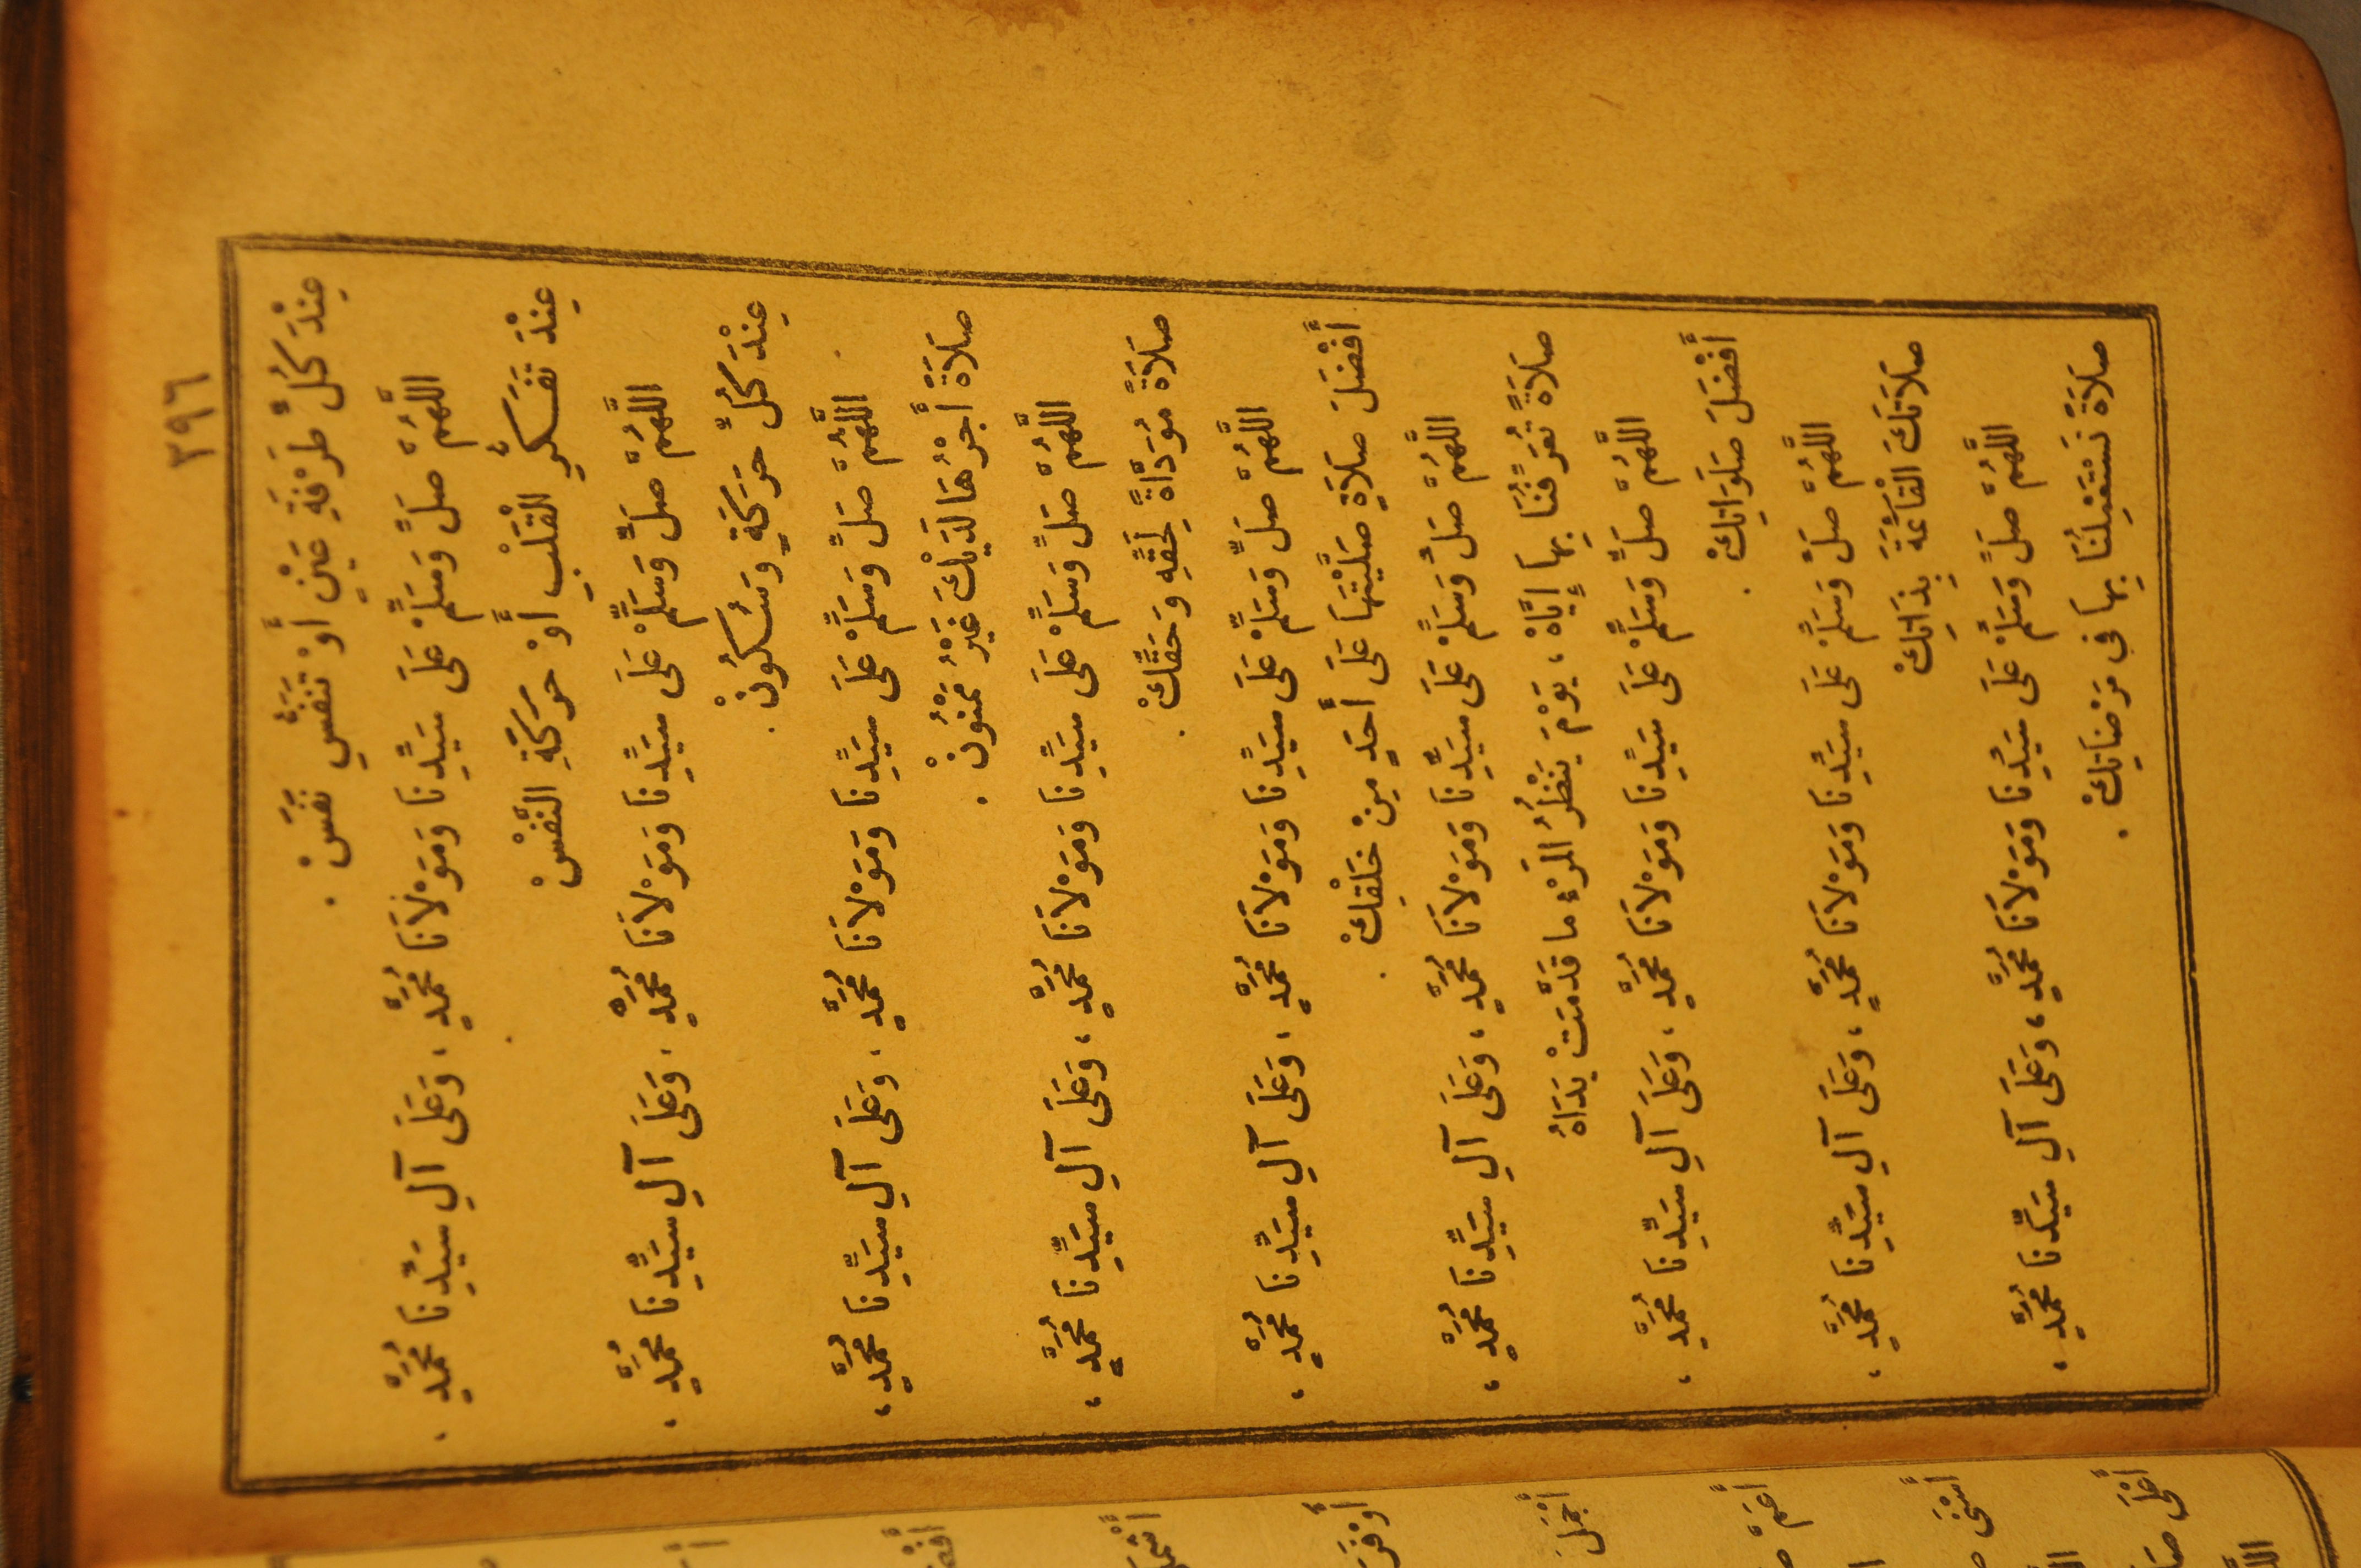 ٢٩٦
عِنْدَ كُلِّ طَرْفَةِ عَيْنٍ أَوْ تَنَفُّسِ نَفَسْ .
اللَّهُمَّ صَلِّ وَسَلِّمْ عَلَى سَيِّدِنَا وَمَوْلَانَا مُحَمَّدٍ ، وَعَلَى آلِ سَيِّدِنَا مُحَمَّدٍ ،
عِنْدَ تَفَكُّرِ الْقَلْبِ أَوْ حَرَكَةِ النَّفْسْ
اللَّهُمَّ صَلِّ وَسَلِّمْ عَلَى سَيِّدِنَا وَمَوْلَانَا مُحَمَّدٍ ، وَعَلَى آلِ سَيِّدِنَا مُحَمَّدٍ ،
عِنْدَ كُلِّ حَرَكَةٍ وَسُكُونْ .
اللَّهُمَّ صَلِّ وَسَلِّمْ عَلَى سَيِّدِنَا وَمَوْلَانَا مُحَمَّدٍ ، وَعَلَى آلِ سَيِّدِنَا مُحَمَّدٍ ،
صَلَاةً أَجْرُهَا لَدَيْكَ غَيْرُ مَمْنُونْ .
اللَّهُمَّ صَلِّ وَسَلِّمْ عَلَى سَيِّدِنَا وَمَوْلَانَا مُحَمَّدٍ ، وَعَلَى آلِ سَيِّدِنَا مُحَمَّدٍ ،
صَلَاةً مُؤَدَّاةً لِحَقِّهِ وَحَقِّكْ .
اللَّهُمَّ صَلِّ وَسَلِّمْ عَلَى سَيِّدِنَا وَمَوْلَانَا مُحَمَّدٍ ، وَعَلَى آلِ سَيِّدِنَا مُحَمَّدٍ ،
أَفْضَلَ صَلَاةٍ صَلَّيْتَهَا عَلَى أَحَدٍ مِنْ خَلْقِكْ .
اللَّهُمَّ صَلِّ وَسَلِّمْ عَلَى سَيِّدِنَا وَمَوْلَانَا مُحَمَّدٍ ، وَعَلَى آلِ سَيِّدِنَا مُحَمَّدٍ ،
صَلَاةً تُعَرِّفُنَا بِهَا إِيَّاهْ ، يَوْمَ يَنْظُرُ الْمَرْءُ مَا قَدَّمَتْ يَدَاهْ
اللَّهُمَّ صَلِّ وَسَلِّمْ عَلَى سَيِّدِنَا وَمَوْلَانَا مُحَمَّدٍ ، وَعَلَى آلِ سَيِّدِنَا مُحَمَّدٍ ،
أَفْضَلَ صَلَوَاتِكْ .
اللَّهُمَّ صَلِّ وَسَلِّمْ عَلَى سَيِّدِنَا وَمَوْلَانَا مُحَمَّدٍ ، وَعَلَى آلِ سَيِّدِنَا مُحَمَّدٍ ،
صَلَاتَكَ الْقَائِمَةَ بِذَاتِكْ
اللَّهُمَّ صَلِّ وَسَلِّمْ عَلَى سَيِّدِنَا وَمَوْلَانَا مُحَمَّدٍ ، وَعَلَى آلِ سَيِّدِنَا مُحَمَّدٍ ،
صَلَاةً تَسْتَعْمِلُنَا بِهَا فِي مَرْضَاتِكْ .